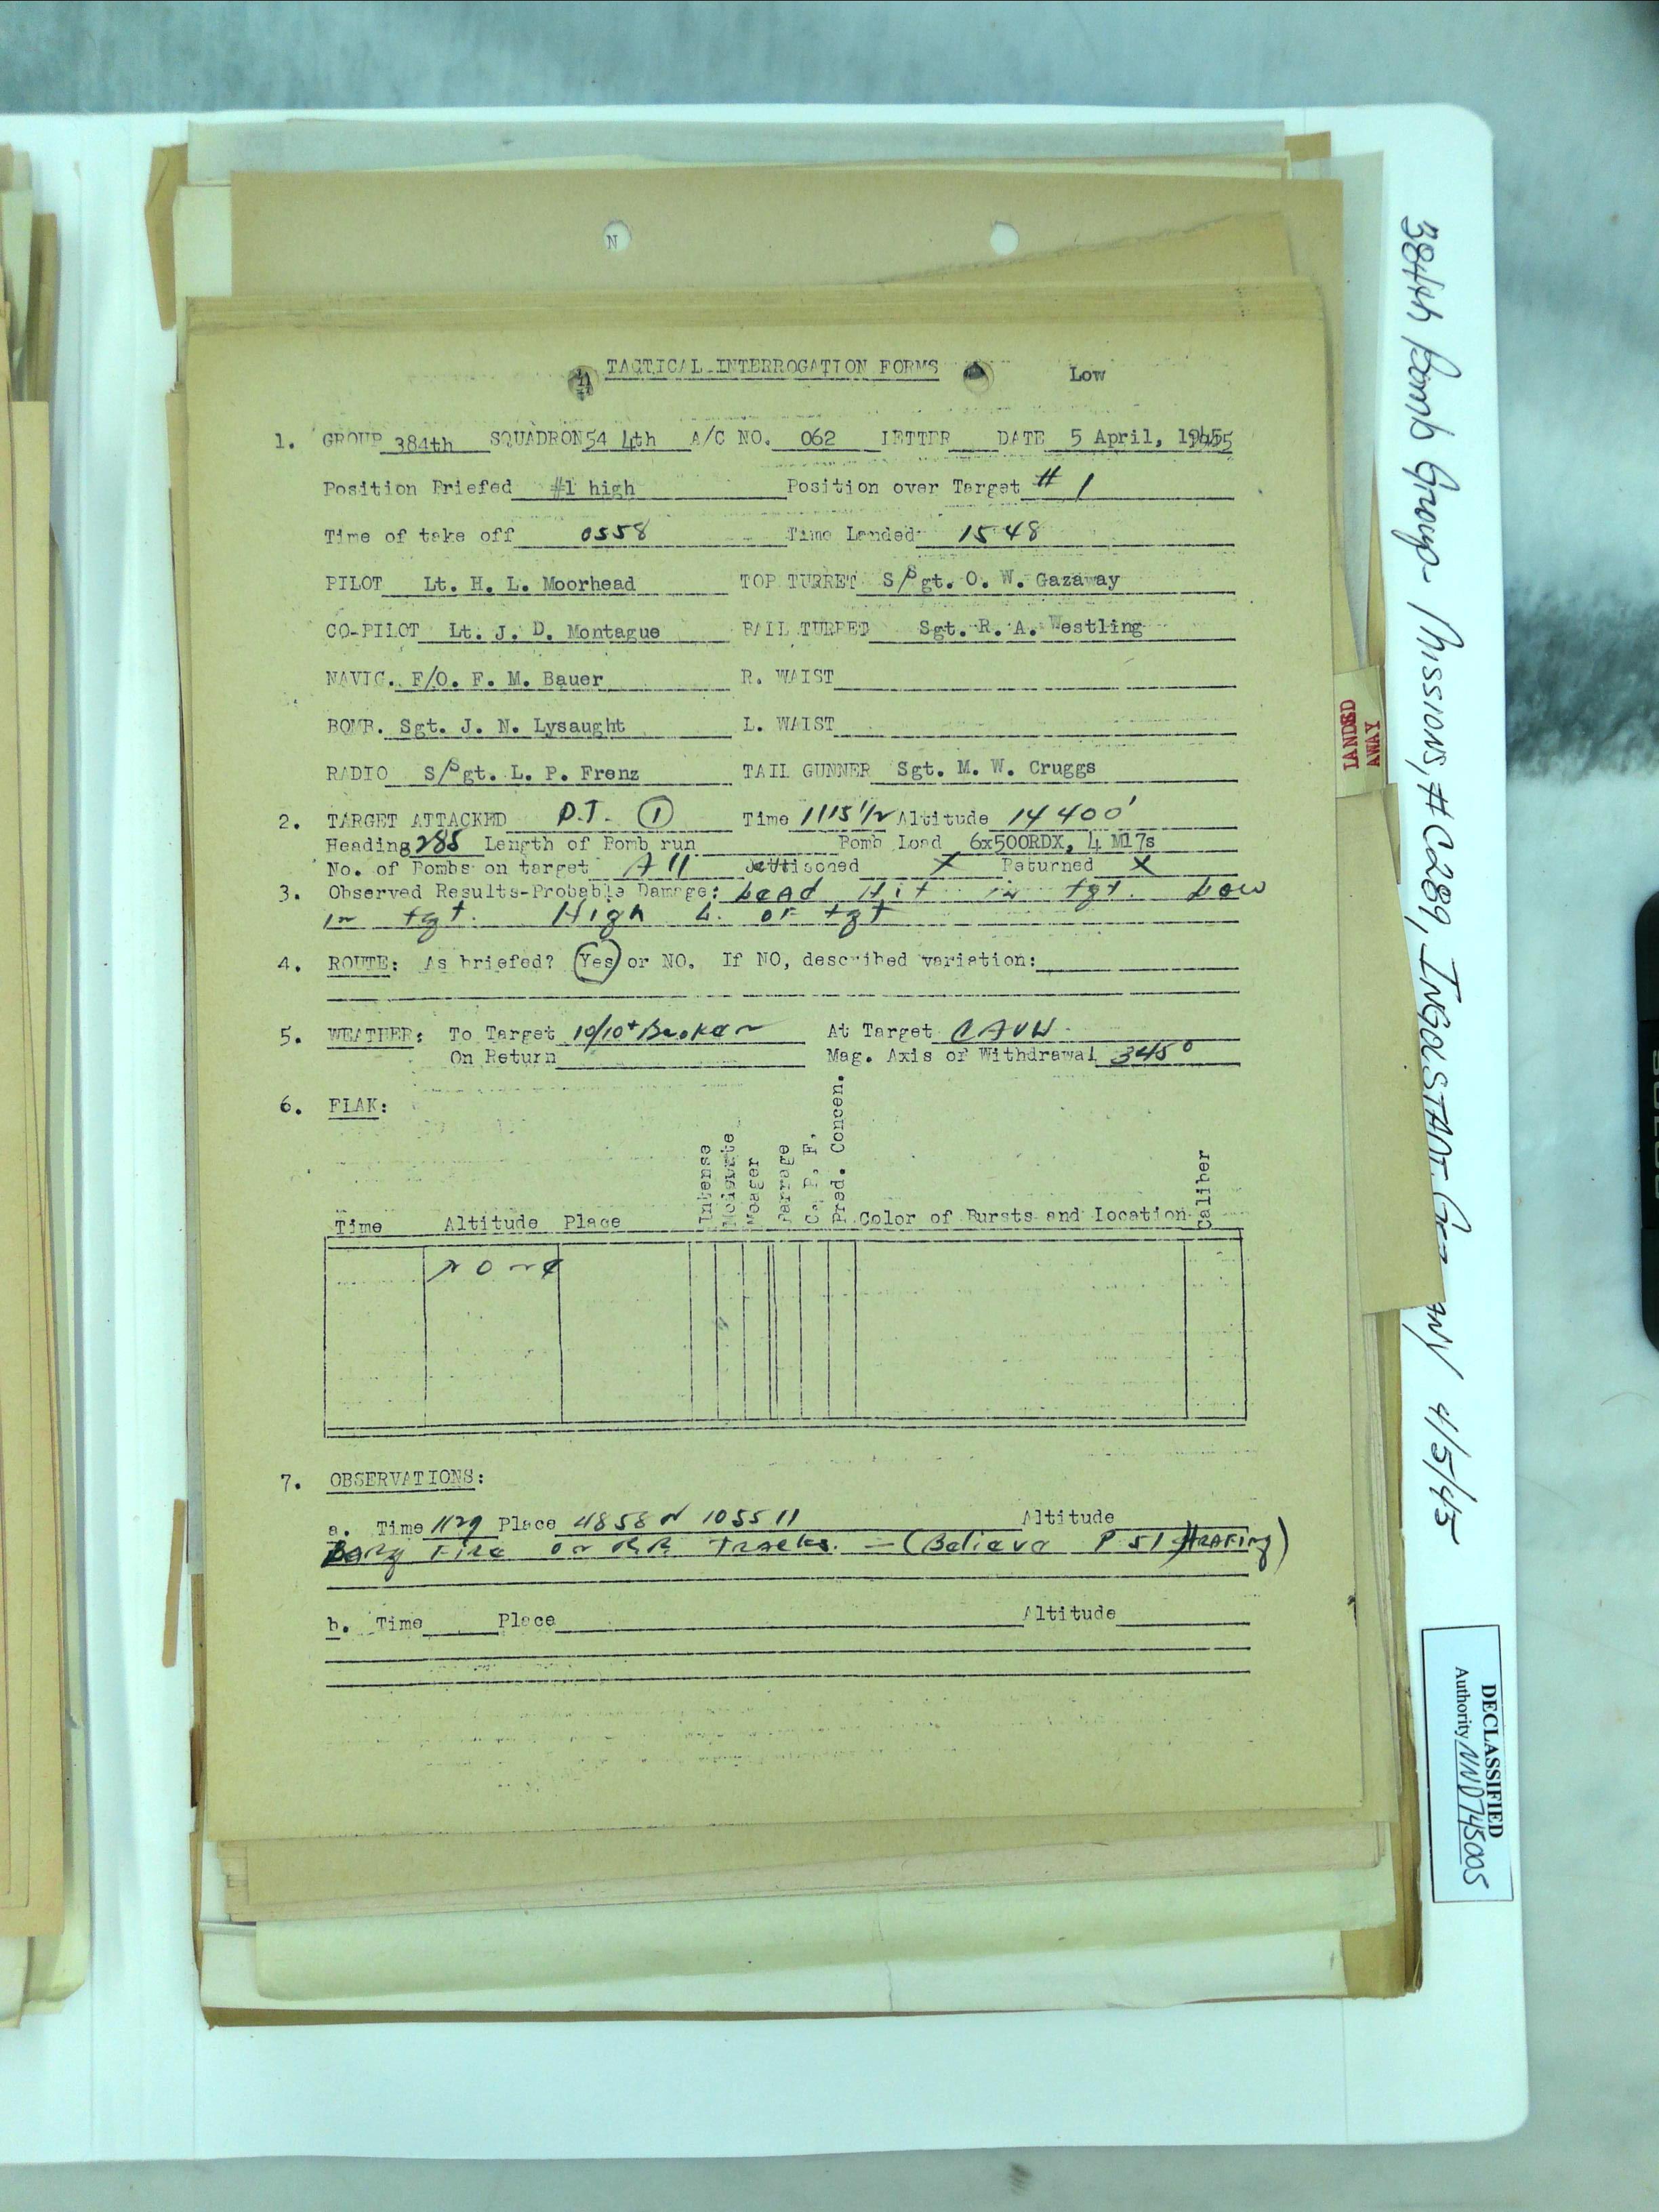 N
TACTICAL INTERROGATION FORMS Low
1. GROUP 384th SQUADRON 544th A/C NO. 062 LETTER DATE 5 April, 1945
Position Briefed #1 high Position over Target # 1
Time of take off 0558 Time Landed 1548
PILOT Lt. H. L. Moorhead TOP TURRET S/Sgt. O. W. Gazaway
CO-PILOT Lt. J. D. Montague BALL TURRET Sgt. R. A. Westling
NAVIG. F/O. F. M. Bauer R. WAIST
BOMB. Sgt. J. N. Lysaught L. WAIST
RADIO S/Sgt. L. P. Frenz TAIL GUNNER Sgt. M. W. Cruggs
2. TARGET ATTACKED P.T. 1 Time 1115 1/2 Altitude 14400'
Heading 285 Length of Bomb run Bomb Load 6x500RDX, 4 M17s
No. of Bombs on target All Jettisoned X Returned X
3. Observed Results-Probable Damage: Lead Hit in tgt. Low
in tgt. High L. of tgt
4. ROUTE: As briefed? Yes or NO. If NO, described variation:
5. WEATHER: To Target 10/10+ Broken At Target CAVU
On Return Mag. Axis of Withdrawal 345°
6. FLAK:
Time Altitude Place Intense Moderate Meager Barrage C. P. F. Pred. Concen. Color of Bursts and Location Caliber
None
7. OBSERVATIONS:
a. Time 1129 Place 4858N 1055 Altitude
Fire on RR Tracks. - (Believe P 51 strafing)
b. Time Place Altitude
LANDED
AWAY
384th Bomb Group - Missions, # C289, INGOLSTADT, Germany 4/5/45
DECLASSIFIED
Authority NND745005